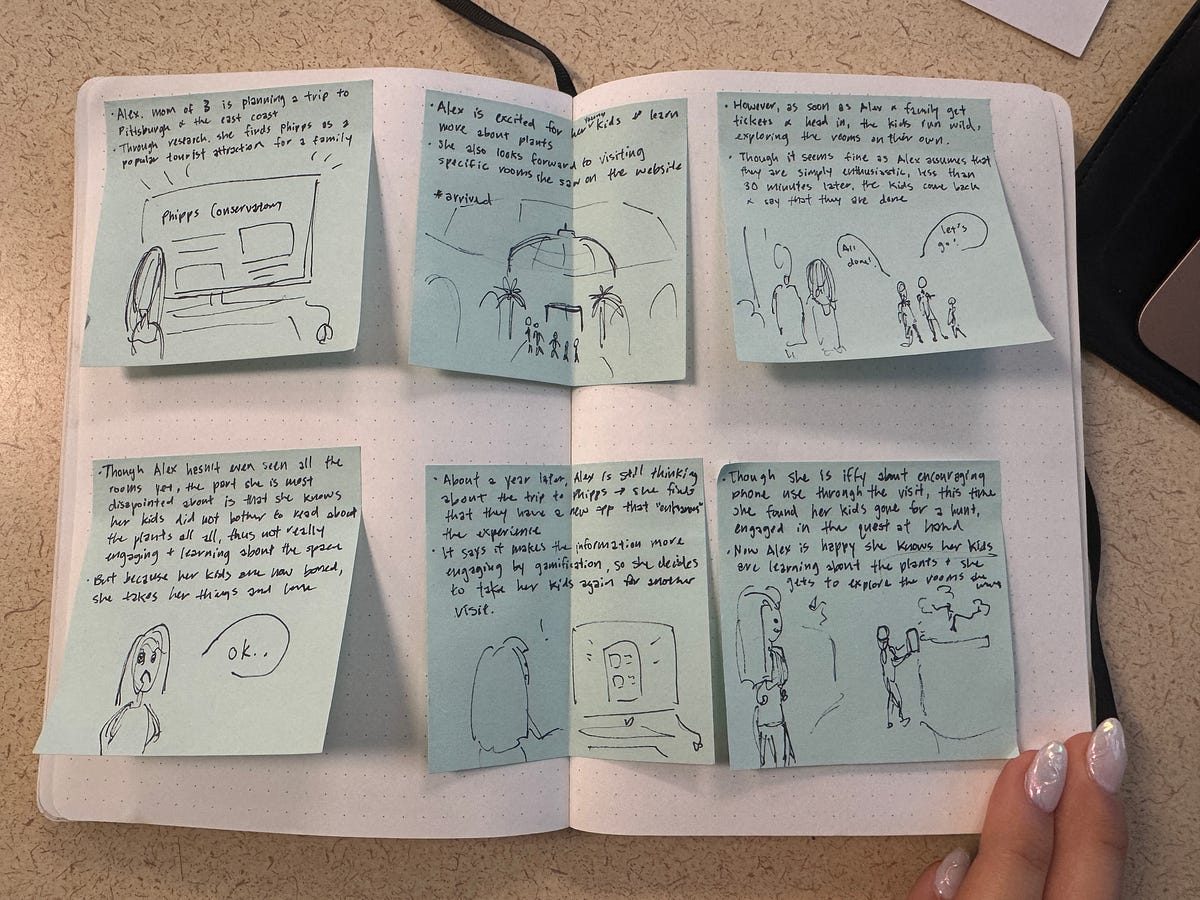 · Alex, mom of 3 is planning a trip to
Pittsburgh & the east coast
· Through research, she finds Phipps as a
popular tourist attraction for a family
Phipps Conservatory
· Alex is excited for her young kids to learn
more about plants
· She also looks forward to visiting
specific rooms she saw on the website
*arrived
· However, as soon as Alex & family get
tickets & head in, the kids run wild,
exploring the rooms on their own.
· Though it seems fine as Alex assumes that
they are simply enthusiastic, less than
30 minutes later, the kids come back
& say that they are done
All
done!
let's
go!
· Though Alex hasn't even seen all the
rooms yet, the part she is most
disapointed about is that she knows
her kids did not bother to read about
the plants all all, thus not really
engaging + learning about the space
· But because her kids are now bored,
she takes her things and
ok..
· About a year later, Alex is still thinking
about the trip to Phipps → she finds
that they have a new app that "enhances"
the experience
· It says it makes the information more
engaging by gamification, so she decides
to take her kids again for another
visit.
!
Though she is iffy about encouraging
phone use through the visit, this time
she found her kids gone for a hunt,
engaged in the quest at hand
· Now Alex is happy she knows her kids
are learning about the plants + she
gets to explore the rooms she